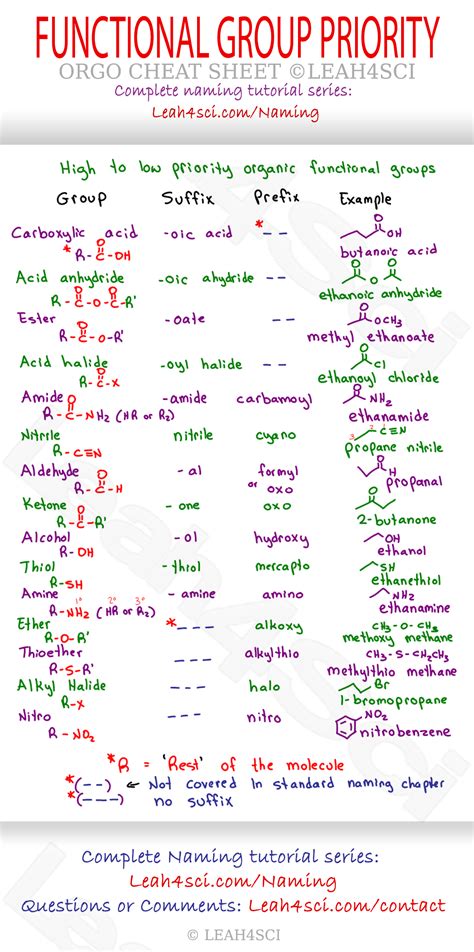 FUNCTIONAL GROUP PRIORITY
ORGO CHEAT SHEET ©LEAH4SCI
Complete naming tutorial series:
Leah4sci.com/Naming
High to low priority organic functional groups
Group Suffix Prefix Example
Carboxylic acid -oic acid *-- 
R-C-OH O OH O
butanoic acid
Acid anhydride -oic ahydride --
R-C-O-C-R' O O O O O
ethanoic anhydride
Ester -oate --
R-C-O-R' O OCH3 O
methyl ethanoate
Acid halide -oyl halide --
R-C-X O Cl O
ethanoyl chloride
Amide -amide carbamoyl NH2 O
R-C-NH2 (HR or R2) O
ethanamide
Nitrile nitrile cyano 3 2 1 C≡N
R-C≡N propane nitrile
Aldehyde -al formyl or oxo
R-C-H O H O
propanal
Ketone -one oxo O
R-C-R' O 2-butanone
Alcohol -ol hydroxy OH
R-OH ethanol
Thiol -thiol mercapto SH
R-SH ethanethiol
Amine -amine amino NH2
R-NH2 (HR or R2) 1° 2° 3° ethanamine
Ether *--- alkoxy CH3-O-CH3
R-O-R' methoxy methane
Thioether --- alkylthio CH3-S-CH2CH3
R-S-R' methylthio methane
Alkyl Halide --- halo Br
R-X 1-bromopropane
Nitro --- nitro NO2
R-NO2 nitrobenzene
*R = 'Rest' of the molecule
*(--) ← Not covered in standard naming chapter
*(---) no suffix
Complete Naming tutorial series:
Leah4sci.com/Naming
Questions or Comments: Leah4sci.com/contact
© LEAH4SCI
Leah4sci
Leah4sci
Leah4sci